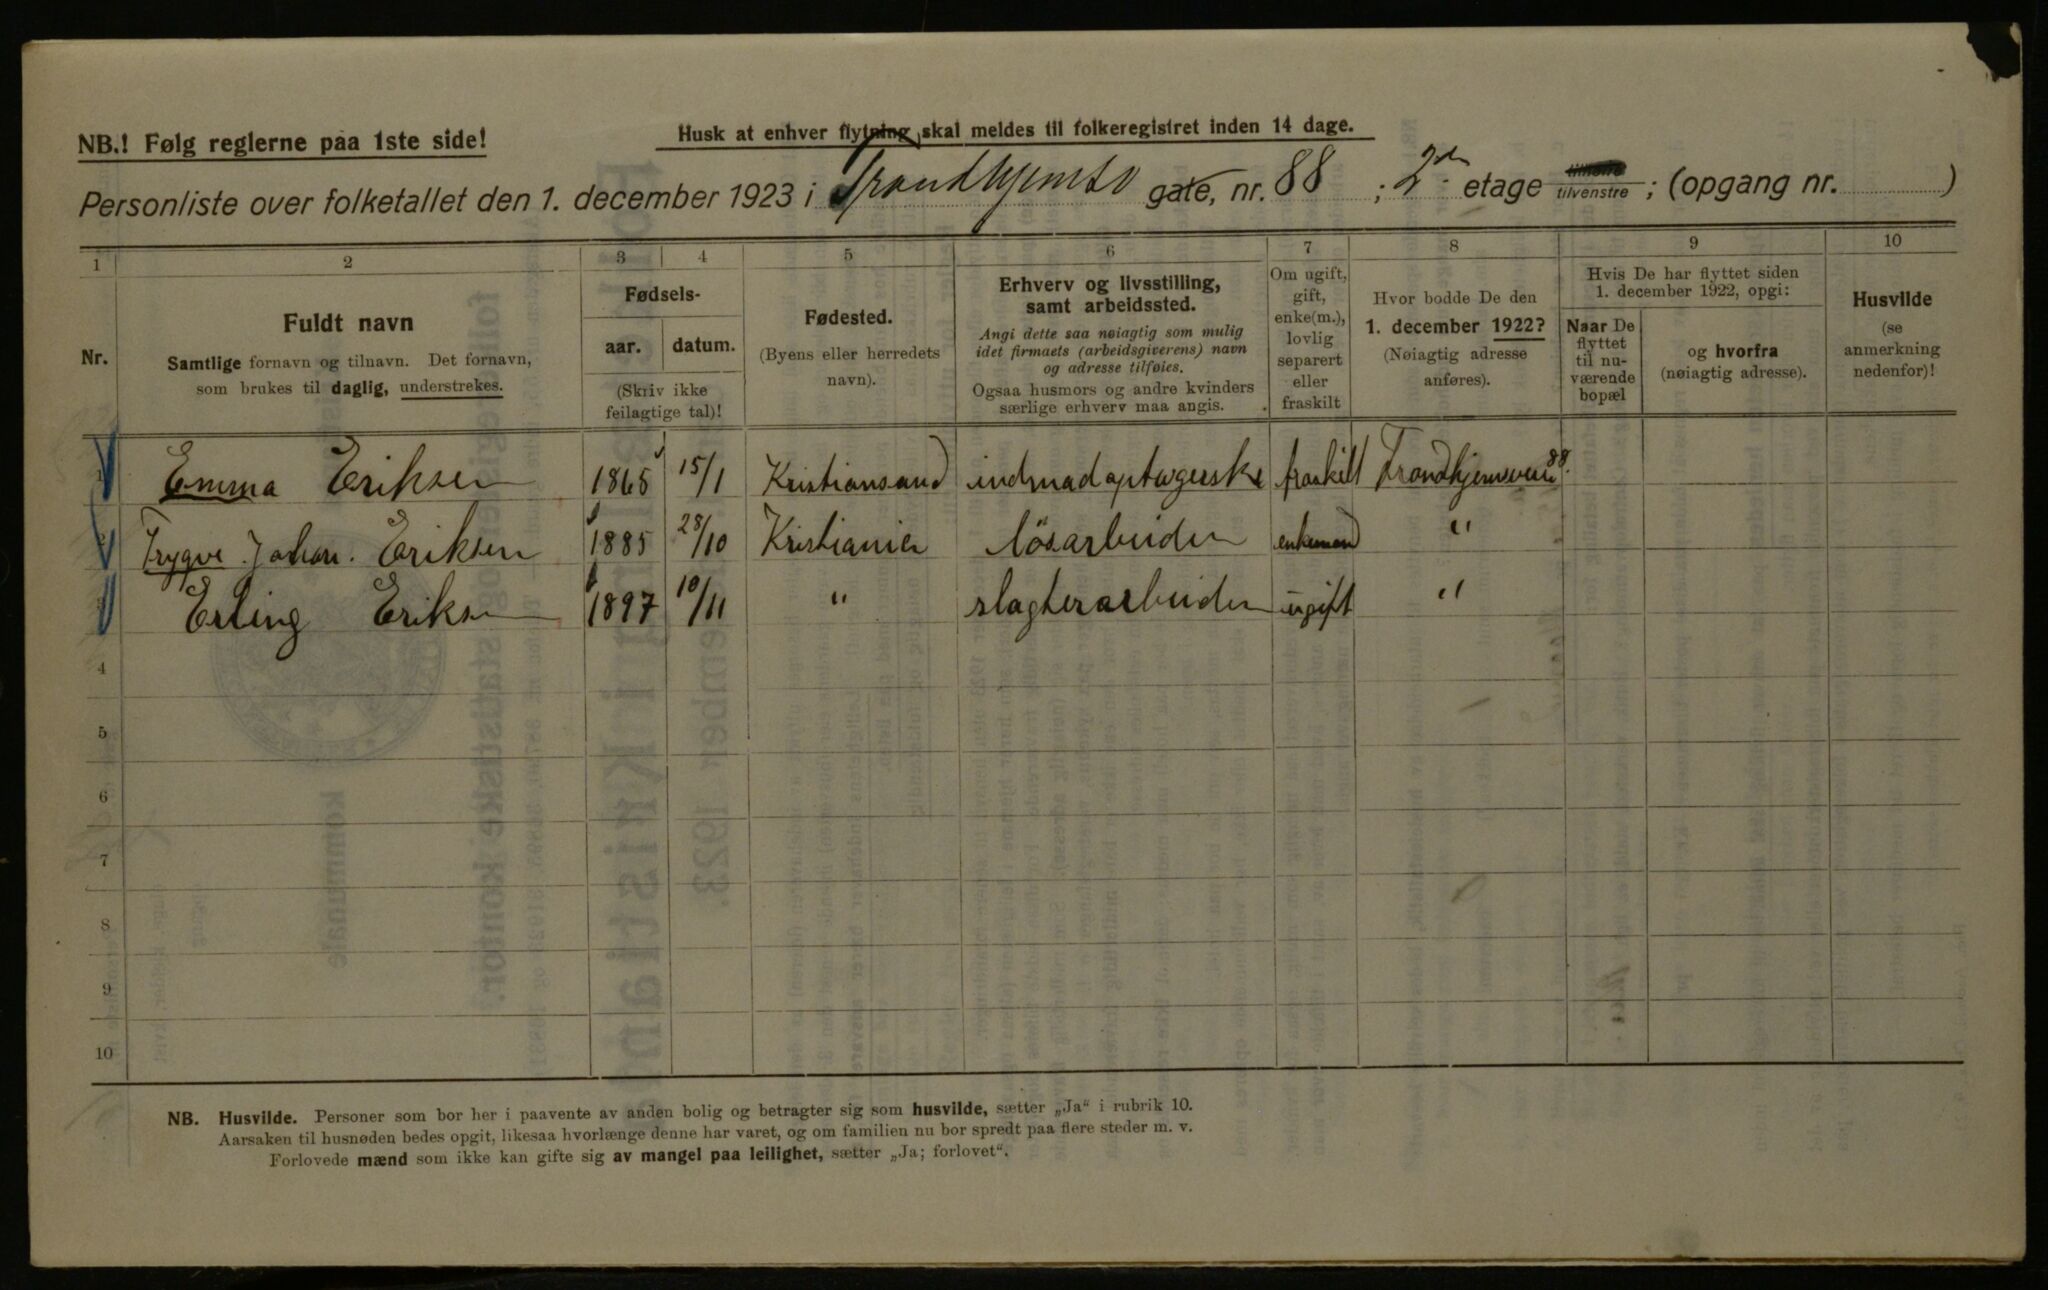 NB.! Følg reglerne paa 1ste side!
Husk at enhver flytning skal meldes til folkeregistret inden 14 dage.
Personliste over folketallet den 1. december 1923 i Trondhjemsv gate, nr. 88 ; 2den etage tilvenstre ; (opgang nr. )
1 2 3 4 5 6 7 8 9 10
Nr.
Fuldt navn
Samtlige fornavn og tilnavn. Det fornavn,
som brukes til daglig, understrekes.
Fødsels-
aar. datum.
(Skriv ikke
feilagtige tal)!
Fødested.
(Byens eller herredets
navn).
Erhverv og livsstilling,
samt arbeidssted.
Angi dette saa nøiagtig som mulig
idet firmaets (arbeidsgiverens) navn
og adresse tilføies.
Ogsaa husmors og andre kvinders
særlige erhverv maa angis.
Om ugift,
gift,
enke(m.),
lovlig
separert
eller
fraskilt
Hvor bodde De den
1. december 1922?
(Nøiagtig adresse
anføres).
Hvis De har flyttet siden
1. december 1922, opgi:
Naar De
flyttet
til nu-
værende
bopæl
og hvorfra
(nøiagtig adresse).
Husvilde
(se
anmerkning
nedenfor)!
1 Emma Eriksen 1865 15/1 Kristiansand fraskilt Trondhjemsveien 88.
2 Trygve Johan. Eriksen 1885 28/10 Kristiania løsarbeider enkemand "
3 Erling Eriksen 1897 10/11 " slagterarbeider ugift "
4
5
6
7
8
9
10
NB. Husvilde. Personer som bor her i paavente av anden bolig og betragter sig som husvilde, sætter „Ja“ i rubrik 10.
Aarsaken til husnøden bedes opgit, likesaa hvorlænge denne har varet, og om familien nu bor spredt paa flere steder m. v.
Forlovede mænd som ikke kan gifte sig av mangel paa leilighet, sætter „Ja; forlovet“.